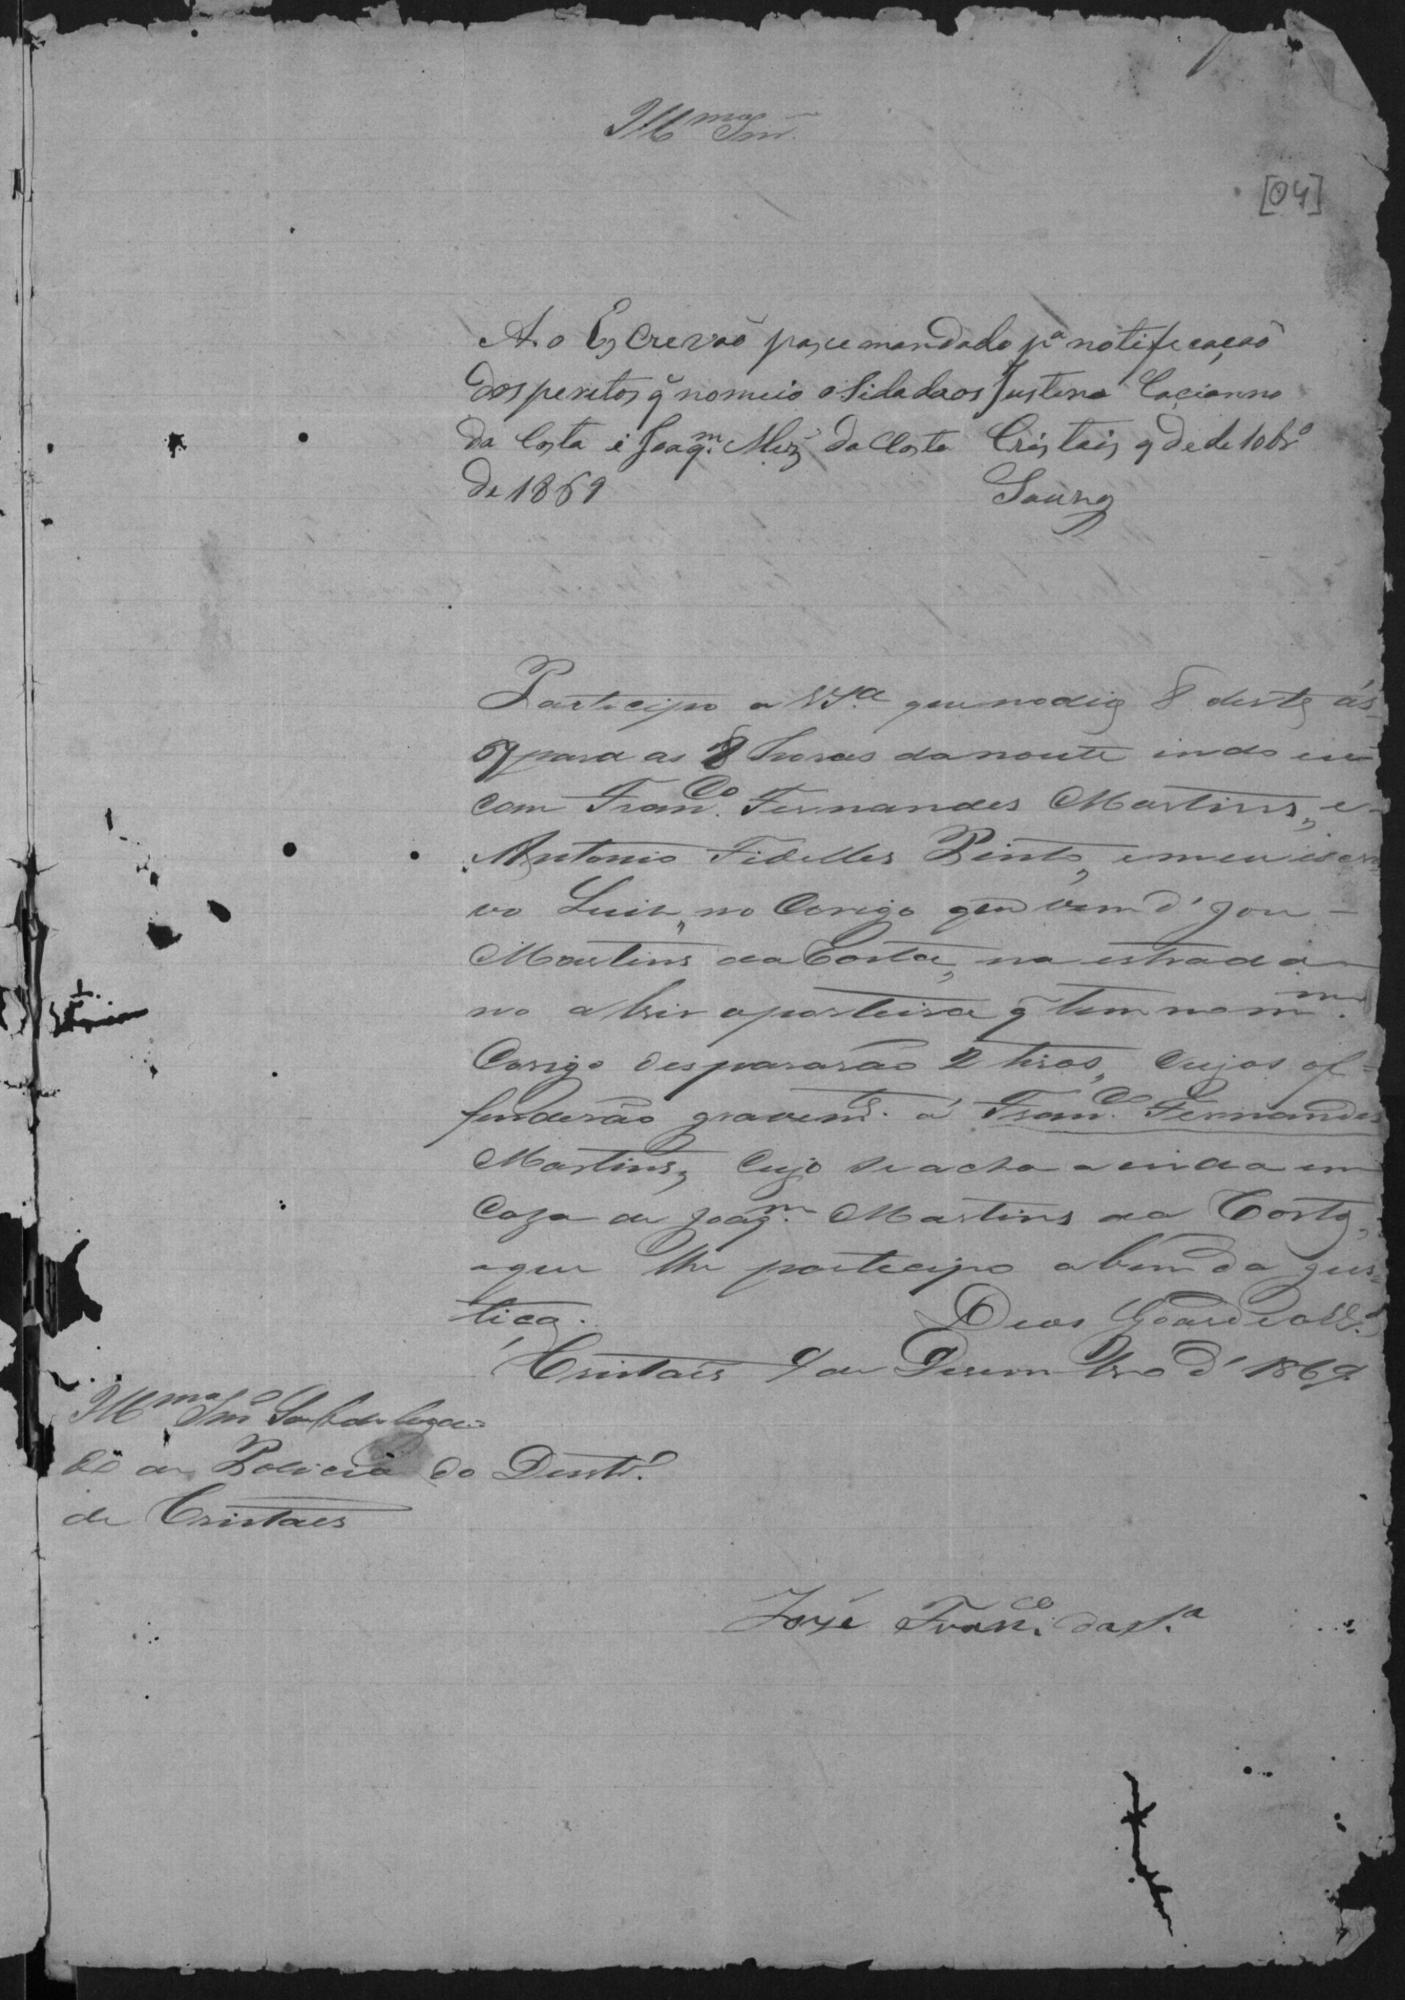 Illmo Snr.
[04]
Ao Escrevaõ pase mandado pa notificaçaõ
dos peritos q̃ nomeio o Sidadaos Justino Caçianno
da Costa e Joaqm. Miz̃ da Costa Cristais 9 de de 10bro
de 1869
Participo a VSa. que no dia 8 deste ás
7 para as 8 horas da noute indo eu
com Franco. Fernandes Martins, e
Antonio Fidelles Pinto, e meu escra
vo Luis, no Corigo que vem d'
Martins da Costa, na estrada
no abrir a porteira q̃ tem no mmo.
Corigo despararão 2 tiros, Cujos of=
fenderão gravemte. a Franco. Fernandes
Martins, Cujo se acha ainda em
Caza de Joaqm. Martins da Costa,
o que lhe participo a bem da jus=
tiça. Deos Goarde a VSa.
Cristais 9 de Desembro d' 1869
Illmo Snr Subdelega=
do de Policia do Destro.
de Cristaes
José Franco. da Sa.